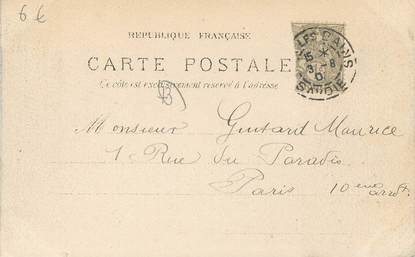 6 €
RÉPUBLIQUE FRANÇAISE
CARTE POSTALE
Ce côté est exclusivement réservé à l'adresse
B
LES BAINS
15 *
3 -8
0
SAVOIE
Monsieur Guitard Maurice
1 Rue du Paradis
Paris 10eme arrot.